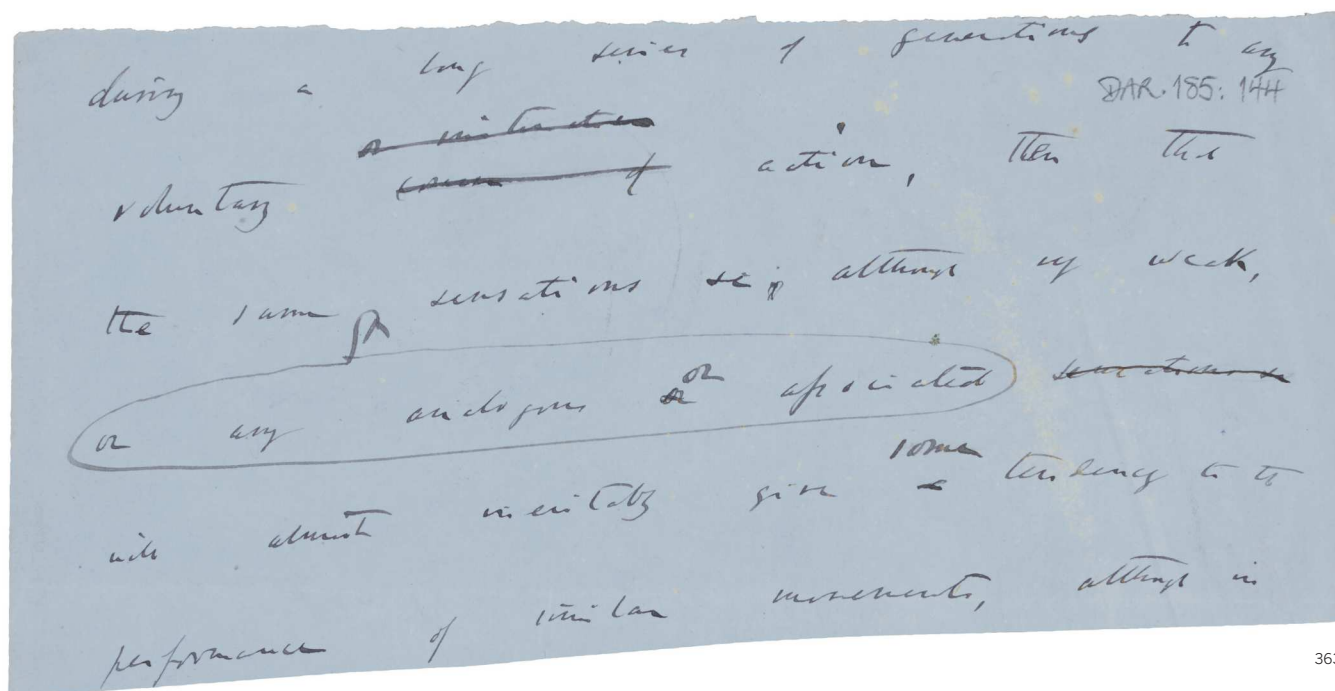 during a long series of generations to any
DAR. 185: 144
voluntary action, then the
the same sensations &c, although very weak,
or any analogous or associated
some
will almost inevitably give a tendency to the
performance of similar movements, although in
363